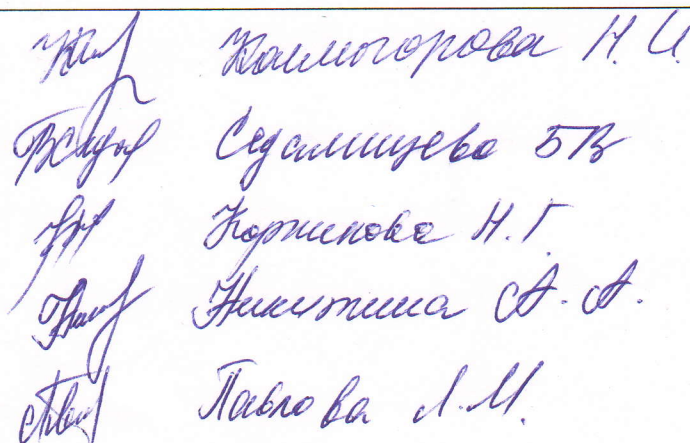 Колмогорова Н. И.
Седалищева БВ
Коржикова Н. Г
Никитина А. А.
Павлова Л. М.